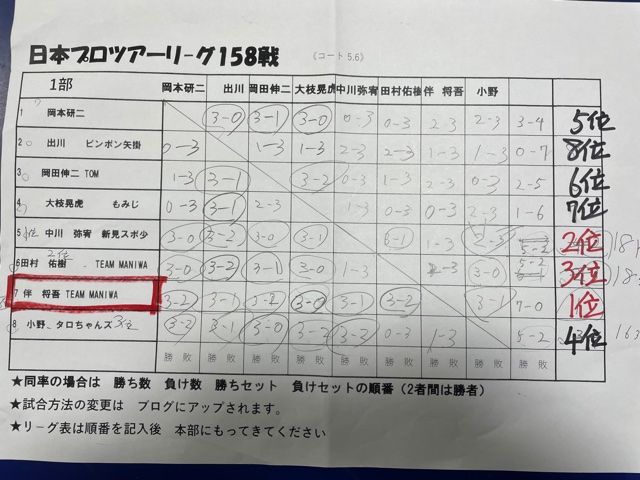 日本プロツアーリーグ158戦 (コート5.6)
1部 岡本研二 出川 岡田伸二 大枝晃虎 中川弥宥 田村佑樹 伴 将吾 小野
1 岡本研二 3-0 3-1 3-0 0-3 0-3 2-3 2-3 3-4 5位
2 出川 ピンポン矢掛 0-3 1-3 1-3 2-3 2-3 1-3 1-3 0-7 8位
3 岡田伸二 TOM 1-3 3-1 3-2 0-3 1-3 2-3 0-3 2-5 6位
4 大枝晃虎 もみじ 0-3 3-1 2-3 0-3 0-3 2-3 1-6 7位
5 中川 弥宥 新見スポ少 3-0 3-2 3-0 3-1 2-3 5-2 2位
6 田村 佑樹 TEAM MANIWA 3-0 3-2 3-1 3-0 1-3 2-3 3-0 5-2 3位
7 伴 将吾 TEAM MANIWA 3-2 3-1 3-2 3-0 3-1 3-2 3-1 7-0 1位
8 小野 タロちゃんズ 3位 3-2 3-1 3-0 3-2 3-2 0-3 1-3 5-2 4位
勝 敗 勝 敗 勝 敗 勝 敗 勝 敗 勝 敗 勝 敗 勝 敗 勝 敗
★同率の場合は 勝ち数 負け数 勝ちセット 負けセットの順番(2者間は勝者)
★試合方法の変更は ブログにアップされます。
★リーグ表は順番を記入後 本部にもってきてください